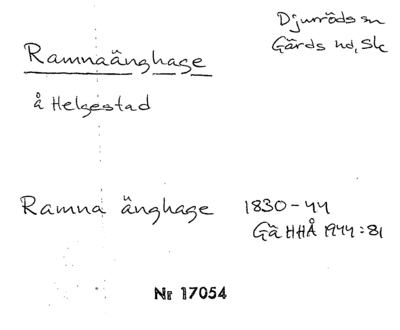 Djurröds sn
Gärds hd, Sk
Ramnaänghage
å Helgestad
Ramna änghage 1830-44
Gä HHÅ 1944:81
Nr 17054